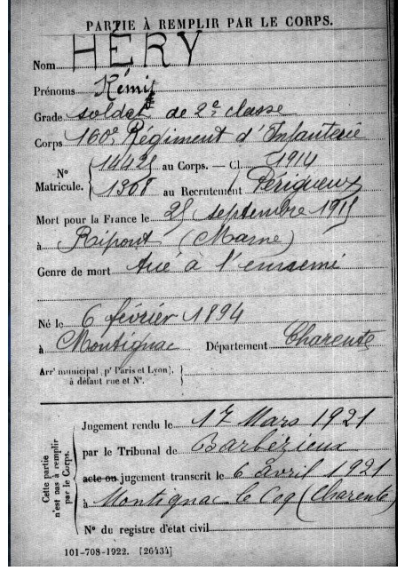 PARTIE À REMPLIR PAR LE CORPS.
Nom HÉRY
Prénoms Rémi
Grade soldat de 2e classe
Corps 160e Régiment d'Infanterie
N° Matricule. { 14425 au Corps. — Cl. 1914
1368 au Recrutement Périgueux
Mort pour la France le 25 septembre 1915
à Ripont (Marne)
Genre de mort tué à l'ennemi
Né le 6 février 1894
à Montignac Département Charente
Arr' municipal (p' Paris et Lyon), à défaut rue et N°. }
Cette partie n'est pas à remplir par le Corps.
Jugement rendu le 17 Mars 1921
par le Tribunal de Barbézieux
acte ou jugement transcrit le 6 avril 1921
à Montignac le Coq (Charente)
N° du registre d'état civil
101-708-1922. [26434]